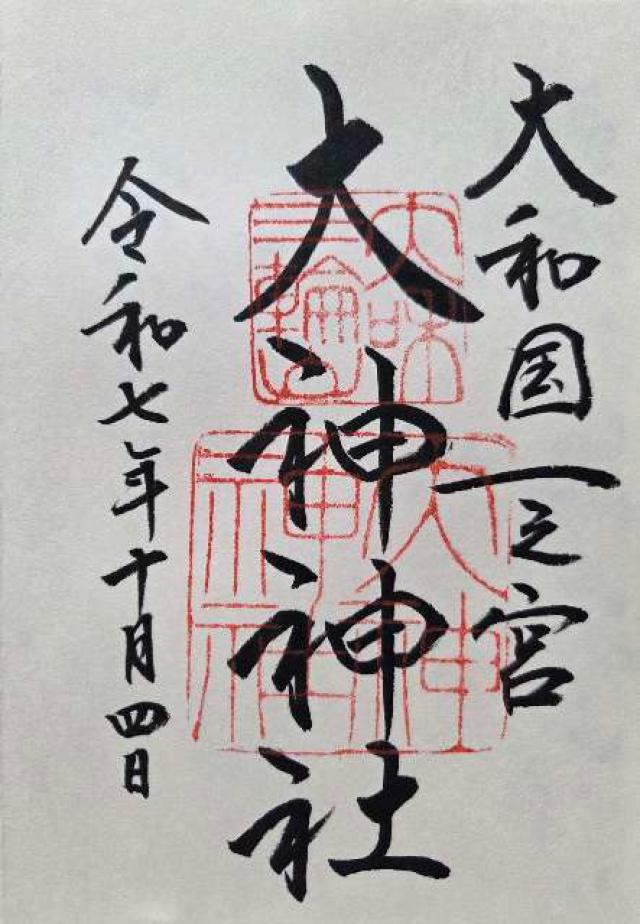 大和国一之宮
大神神社
令和七年十月四日
大神
神社